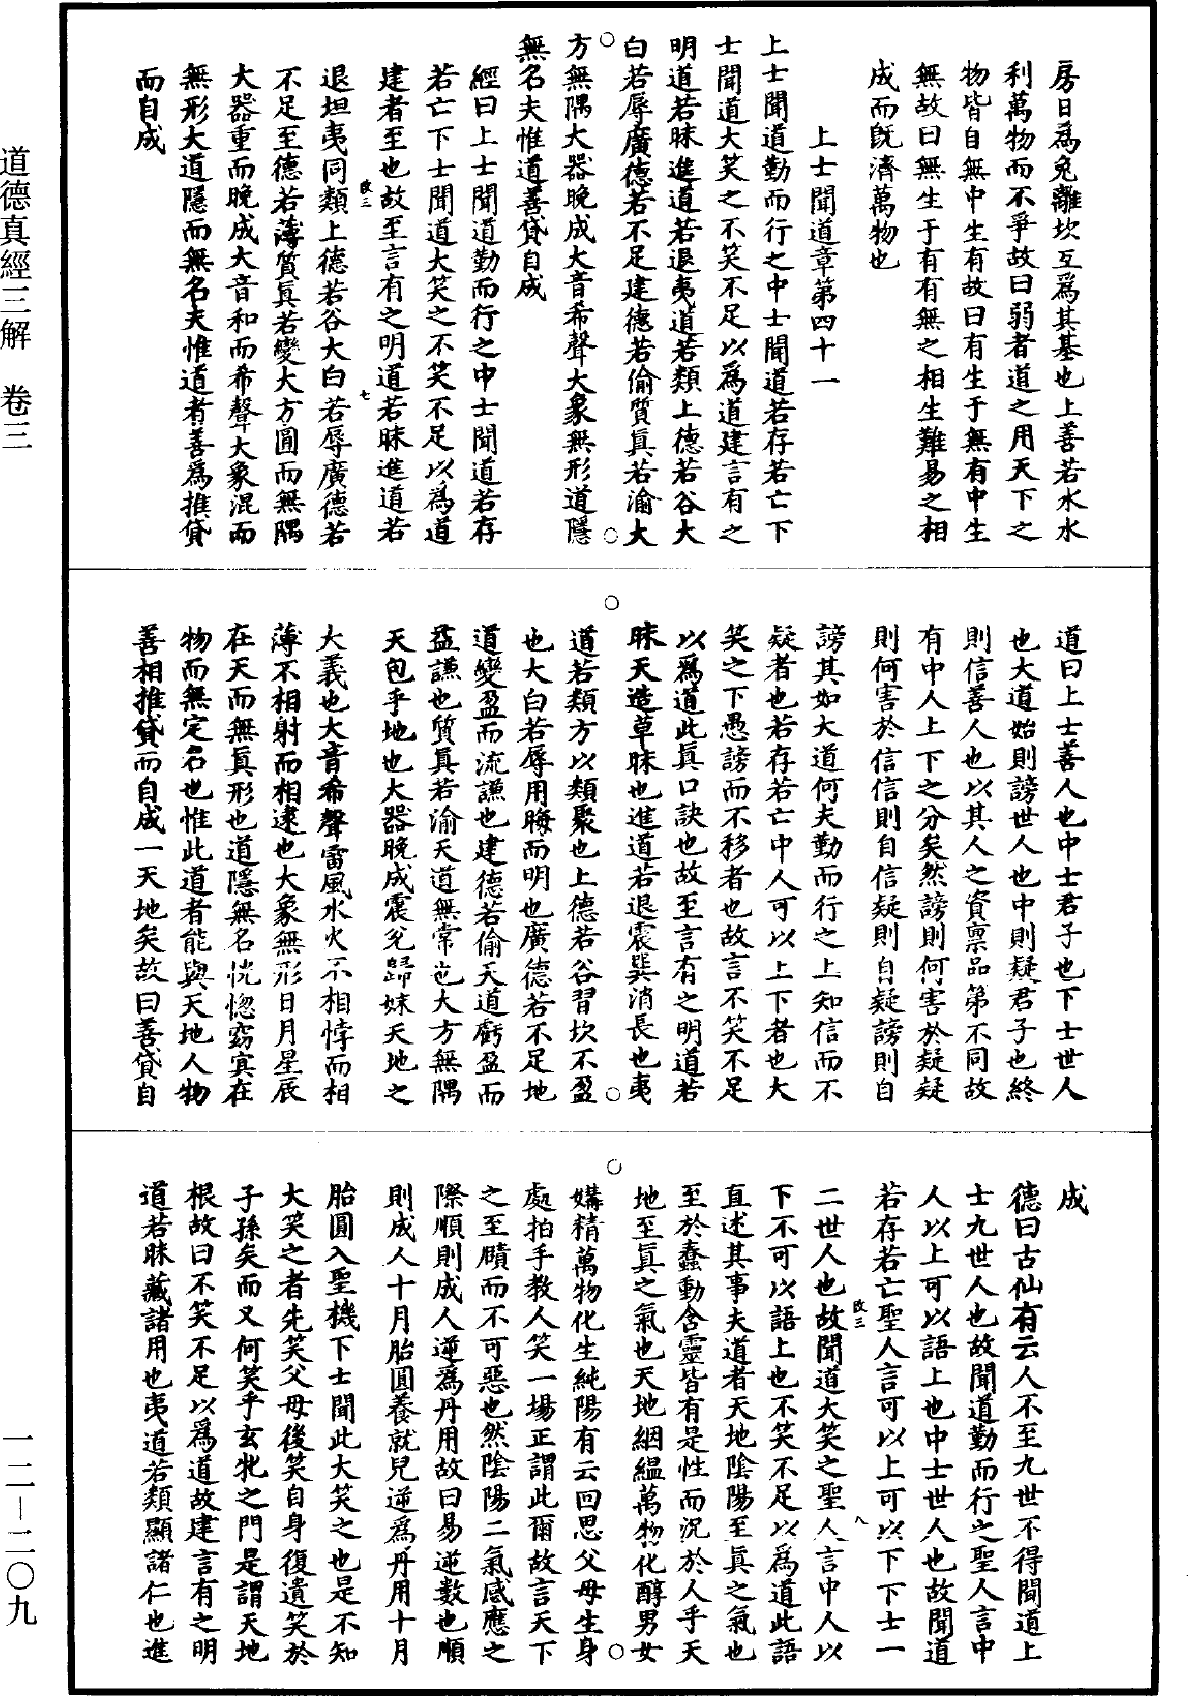 房日為兔離坎互爲其基也上善若水水
利萬物而不爭故曰弱者道之用天下之
物皆自無中生有故曰有生于無有中生
無故曰無生于有有無之相生難易之相
成而旣濟萬物也
上士聞道章第四十一
上士聞道勤而行之中士聞道若存若亡下
士聞道大笑之不笑不足以爲道建言有之
明道若昧進道若退夷道若類上德若谷大
白若辱廣德若不足建德若偷質真若渝大
方無隅大器晚成大音希聲大象無形道隱
無名夫惟道善貸自成
經曰上士聞道勤而行之中士聞道若存
若亡下士聞道大笑之不笑不足以爲道
建者至也故至言有之明道若昧進道若
改三 七
退坦夷同類上德若谷大白若辱廣德若
不足至德若薄質眞若變大方圓而無隅
大器重而晚成大音和而希聲大象混而
無形大道隱而無名夫惟道者善爲推貸
而自成
道曰上士善人也中士君子也下士世人
也大道始則謗世人也中則疑君子也終
則信善人也以其人之資禀品第不同故
有中人上下之分矣然謗則何害於疑疑
則何害於信信則自信疑則自疑謗則自
謗其如大道何夫勤而行之上知信而不
疑者也若存若亡中人可以上下者也大
笑之下愚謗而不移者也故言不笑不足
以爲道此眞口訣也故至言有之明道若
昧天造草昧也進道若退震巽消長也夷
道若類方以類聚也上德若谷習坎不盈
也大白若辱用晦而明也廣德若不足地
道變盈而流謙也建德若偷天道虧盈而
益謙也質眞若渝天道無常也大方無隅
天包乎地也大器晚成震兌歸妹天地之
大義也大音希聲雷風水火不相悖而相
薄不相射而相逮也大象無形日月星辰
在天而無真形也道隱無名恍惚窈冥在
物而無定名也惟此道者能與天地人物
善相推貸而自成一天地矣故曰善貸自
成
德曰古仙有云人不至九世不得聞道上
士九世人也故聞道勤而行之聖人言中
人以上可以語上也中士世人也故聞道
若存若亡聖人言可以上可以下下士一
二世人也故聞道大笑之聖人言中人以
改三 八
下不可以語上也不笑不足以爲道此語
直述其事夫道者天地陰陽至眞之氣也
至於蠢動含靈皆有是性而況於人乎天
地至眞之氣也天地絪縕萬物化醇男女
媾精萬物化生純陽有云回思父母生身
處拍手教人笑一場正謂此爾故言天下
之至賾而不可惡也然陰陽二氣感應之
際順則成人逆爲丹用故曰易逆數也順
則成人十月胎圓養就兒逆爲丹用十月
胎圓入聖機下士聞此大笑之也是不知
大笑之者先笑父母後笑自身復遺笑於
子孫矣而又何笑乎玄牝之門是謂天地
根故曰不笑不足以爲道故建言有之明
道若昧藏諸用也夷道若類顯諸仁也進
道德真經三解 卷三
一二—二〇九